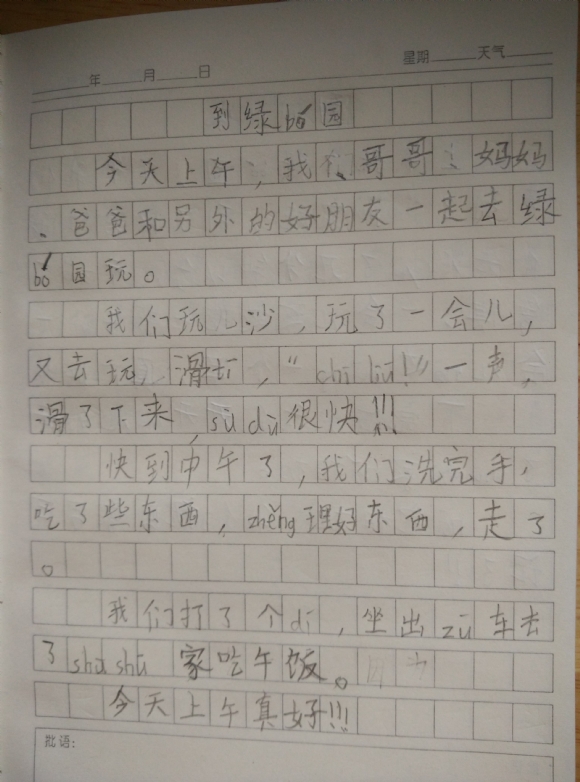 年 月 日 星期 天气
到绿bó园
今天上午，我、哥哥、妈妈
、爸爸和另外的好朋友一起去绿
bó园玩。
我们玩沙，玩了一会儿，
又去玩滑tī，“chī liū！”一声，
滑了下来，sù dù很快!!!
快到中午了，我们洗完手，
吃了些东西，zhěng理好东西，走了
。
我们打了个dī，坐出zū车去
了shū shū家吃午饭。
今天上午真好!!!
批语：